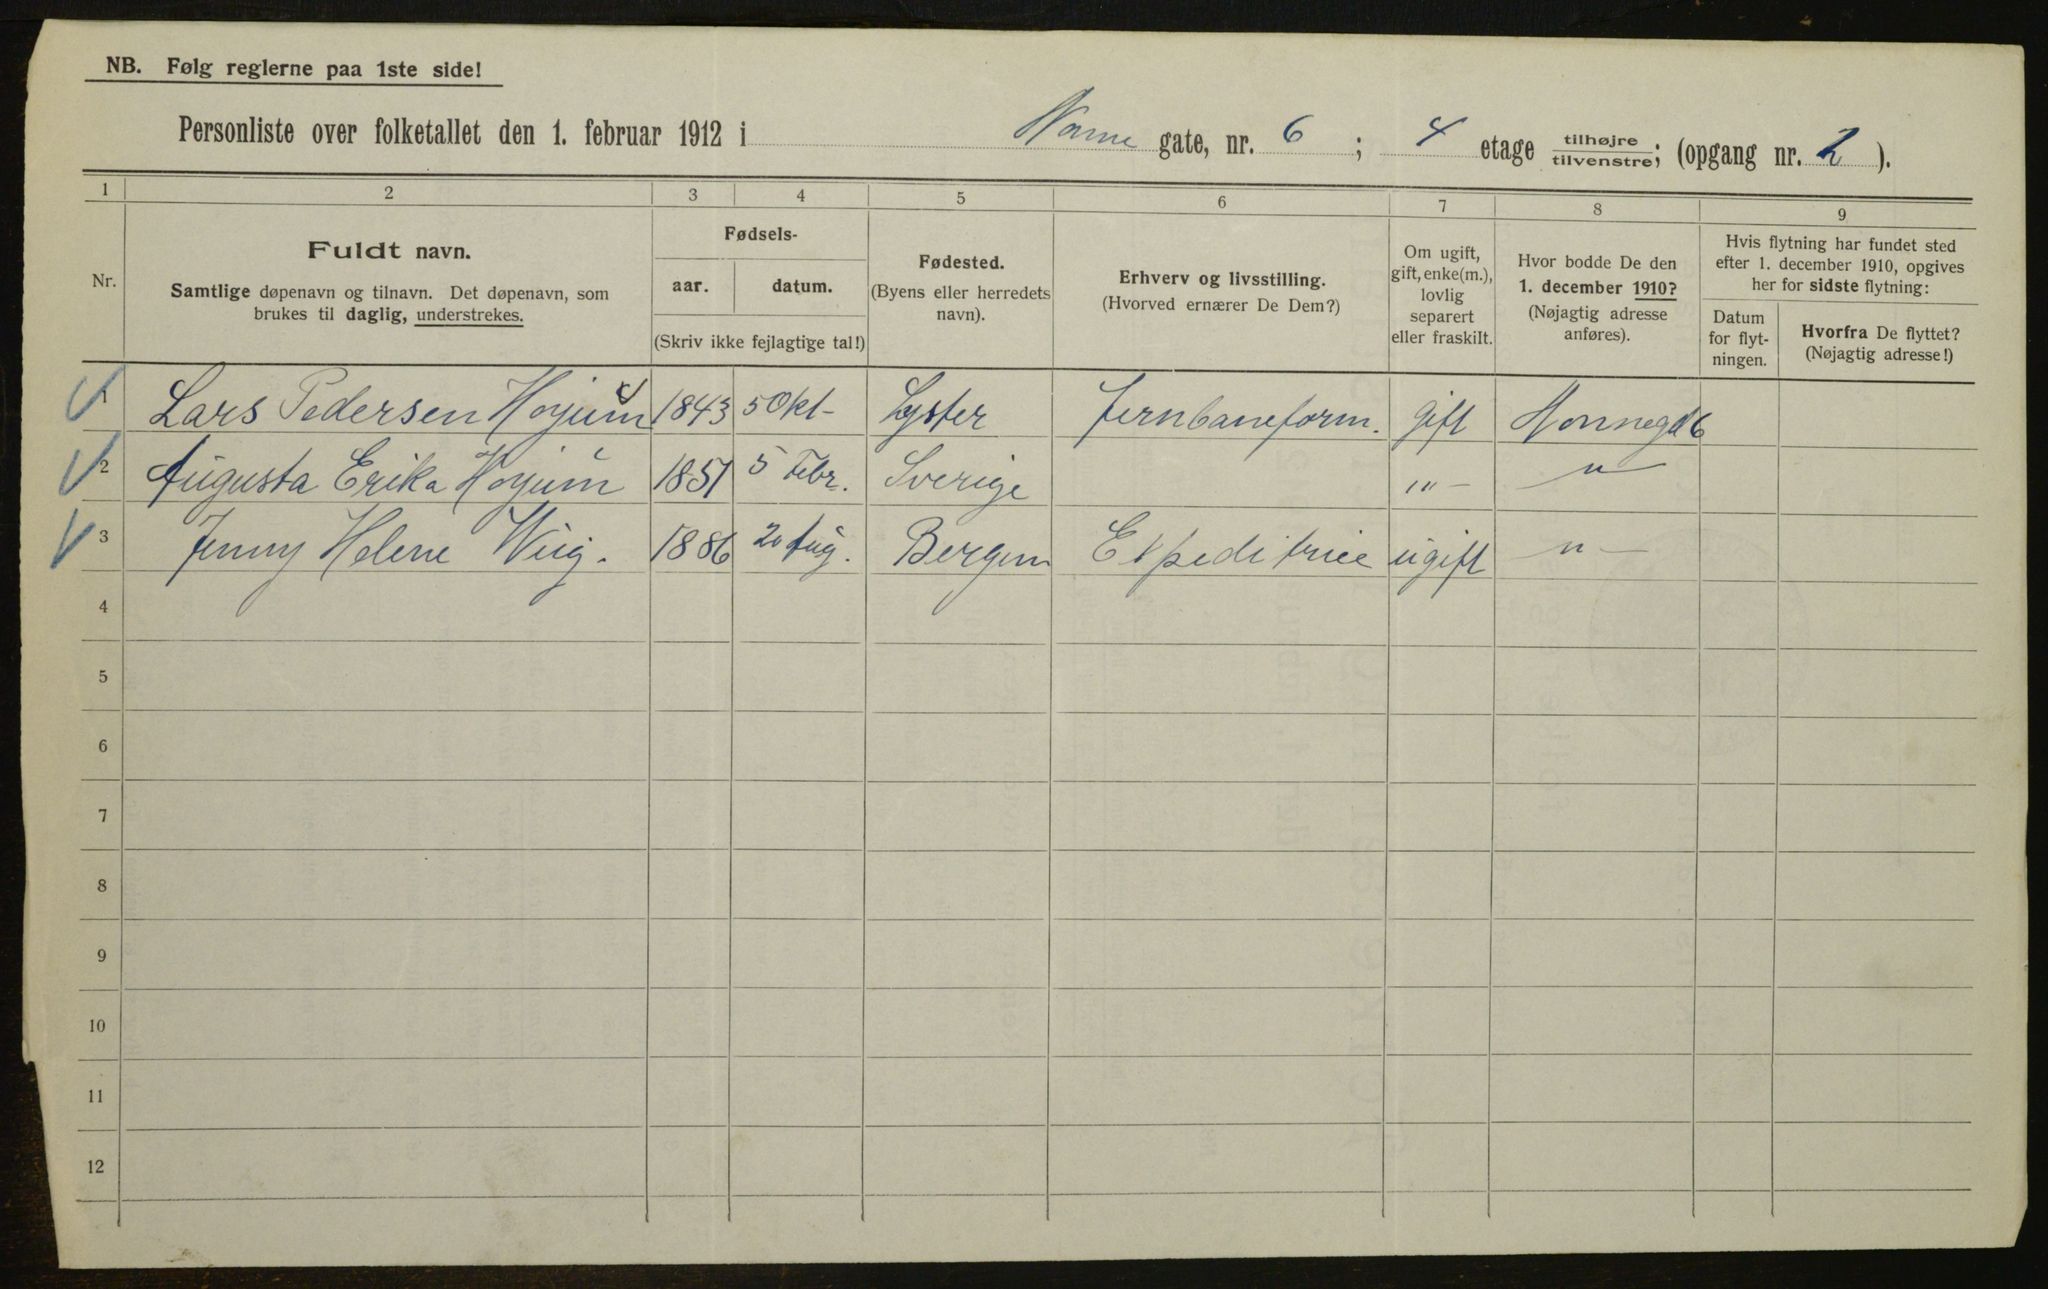 NB. Følg reglerne paa 1ste side!
Personliste over folketallet den 1. februar 1912 i Nonne gate, nr. 6 ; 4 etage tilhøjre/tilvenstre; (opgang nr. 2 ).
1 2 3 4 5 6 7 8 9
Nr.
Fuldt navn.
Samtlige døpenavn og tilnavn. Det døpenavn, som
brukes til daglig, understrekes.
Fødsels-
aar. datum.
(Skriv ikke fejlagtige tal!)
Fødested.
(Byens eller herredets
navn).
Erhverv og livsstilling.
(Hvorved ernærer De Dem?)
Om ugift,
gift, enke(m.),
lovlig
separert
eller fraskilt.
Hvor bodde De den
1. december 1910?
(Nøjagtig adresse
anføres).
Hvis flytning har fundet sted
efter 1. december 1910, opgives
her for sidste flytning:
Datum
for flyt-
ningen.
Hvorfra De flyttet?
(Nøjagtig adresse!)
1 Lars Pedersen Høyum 1843 5 Okt- Lyster Jernbaneform. gift Nonnegd 6
2 Augusta Erika Høyum 1851 5 Febr. Sverige „ - - „ -
3 Jenny Helene Wiig. 1886 20 Aug. Bergen Expeditrice ugift - „ -
4
5
6
7
8
9
10
11
12